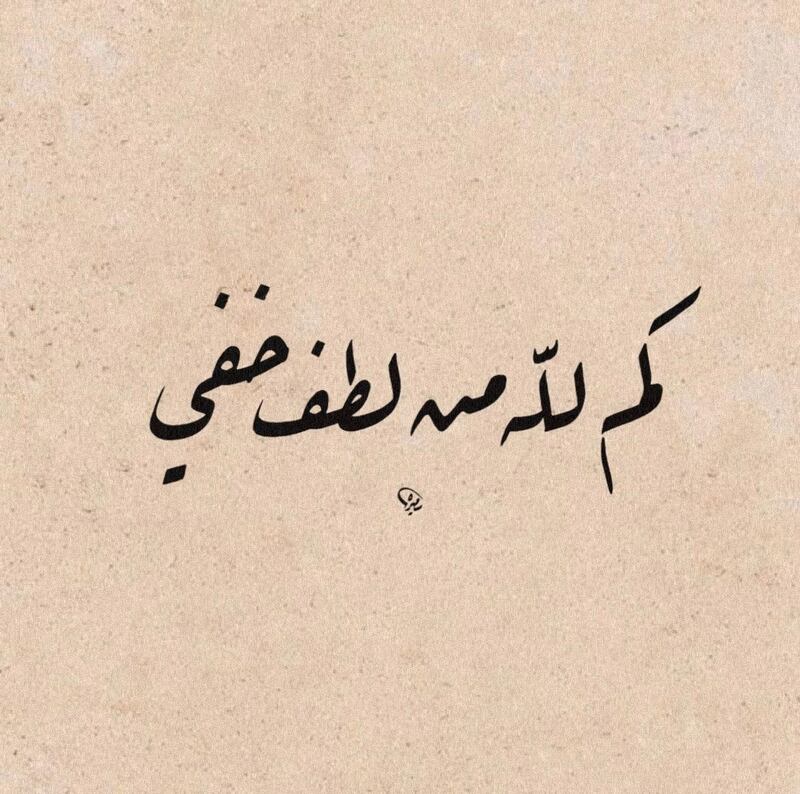 كم للّه من لطف خفي